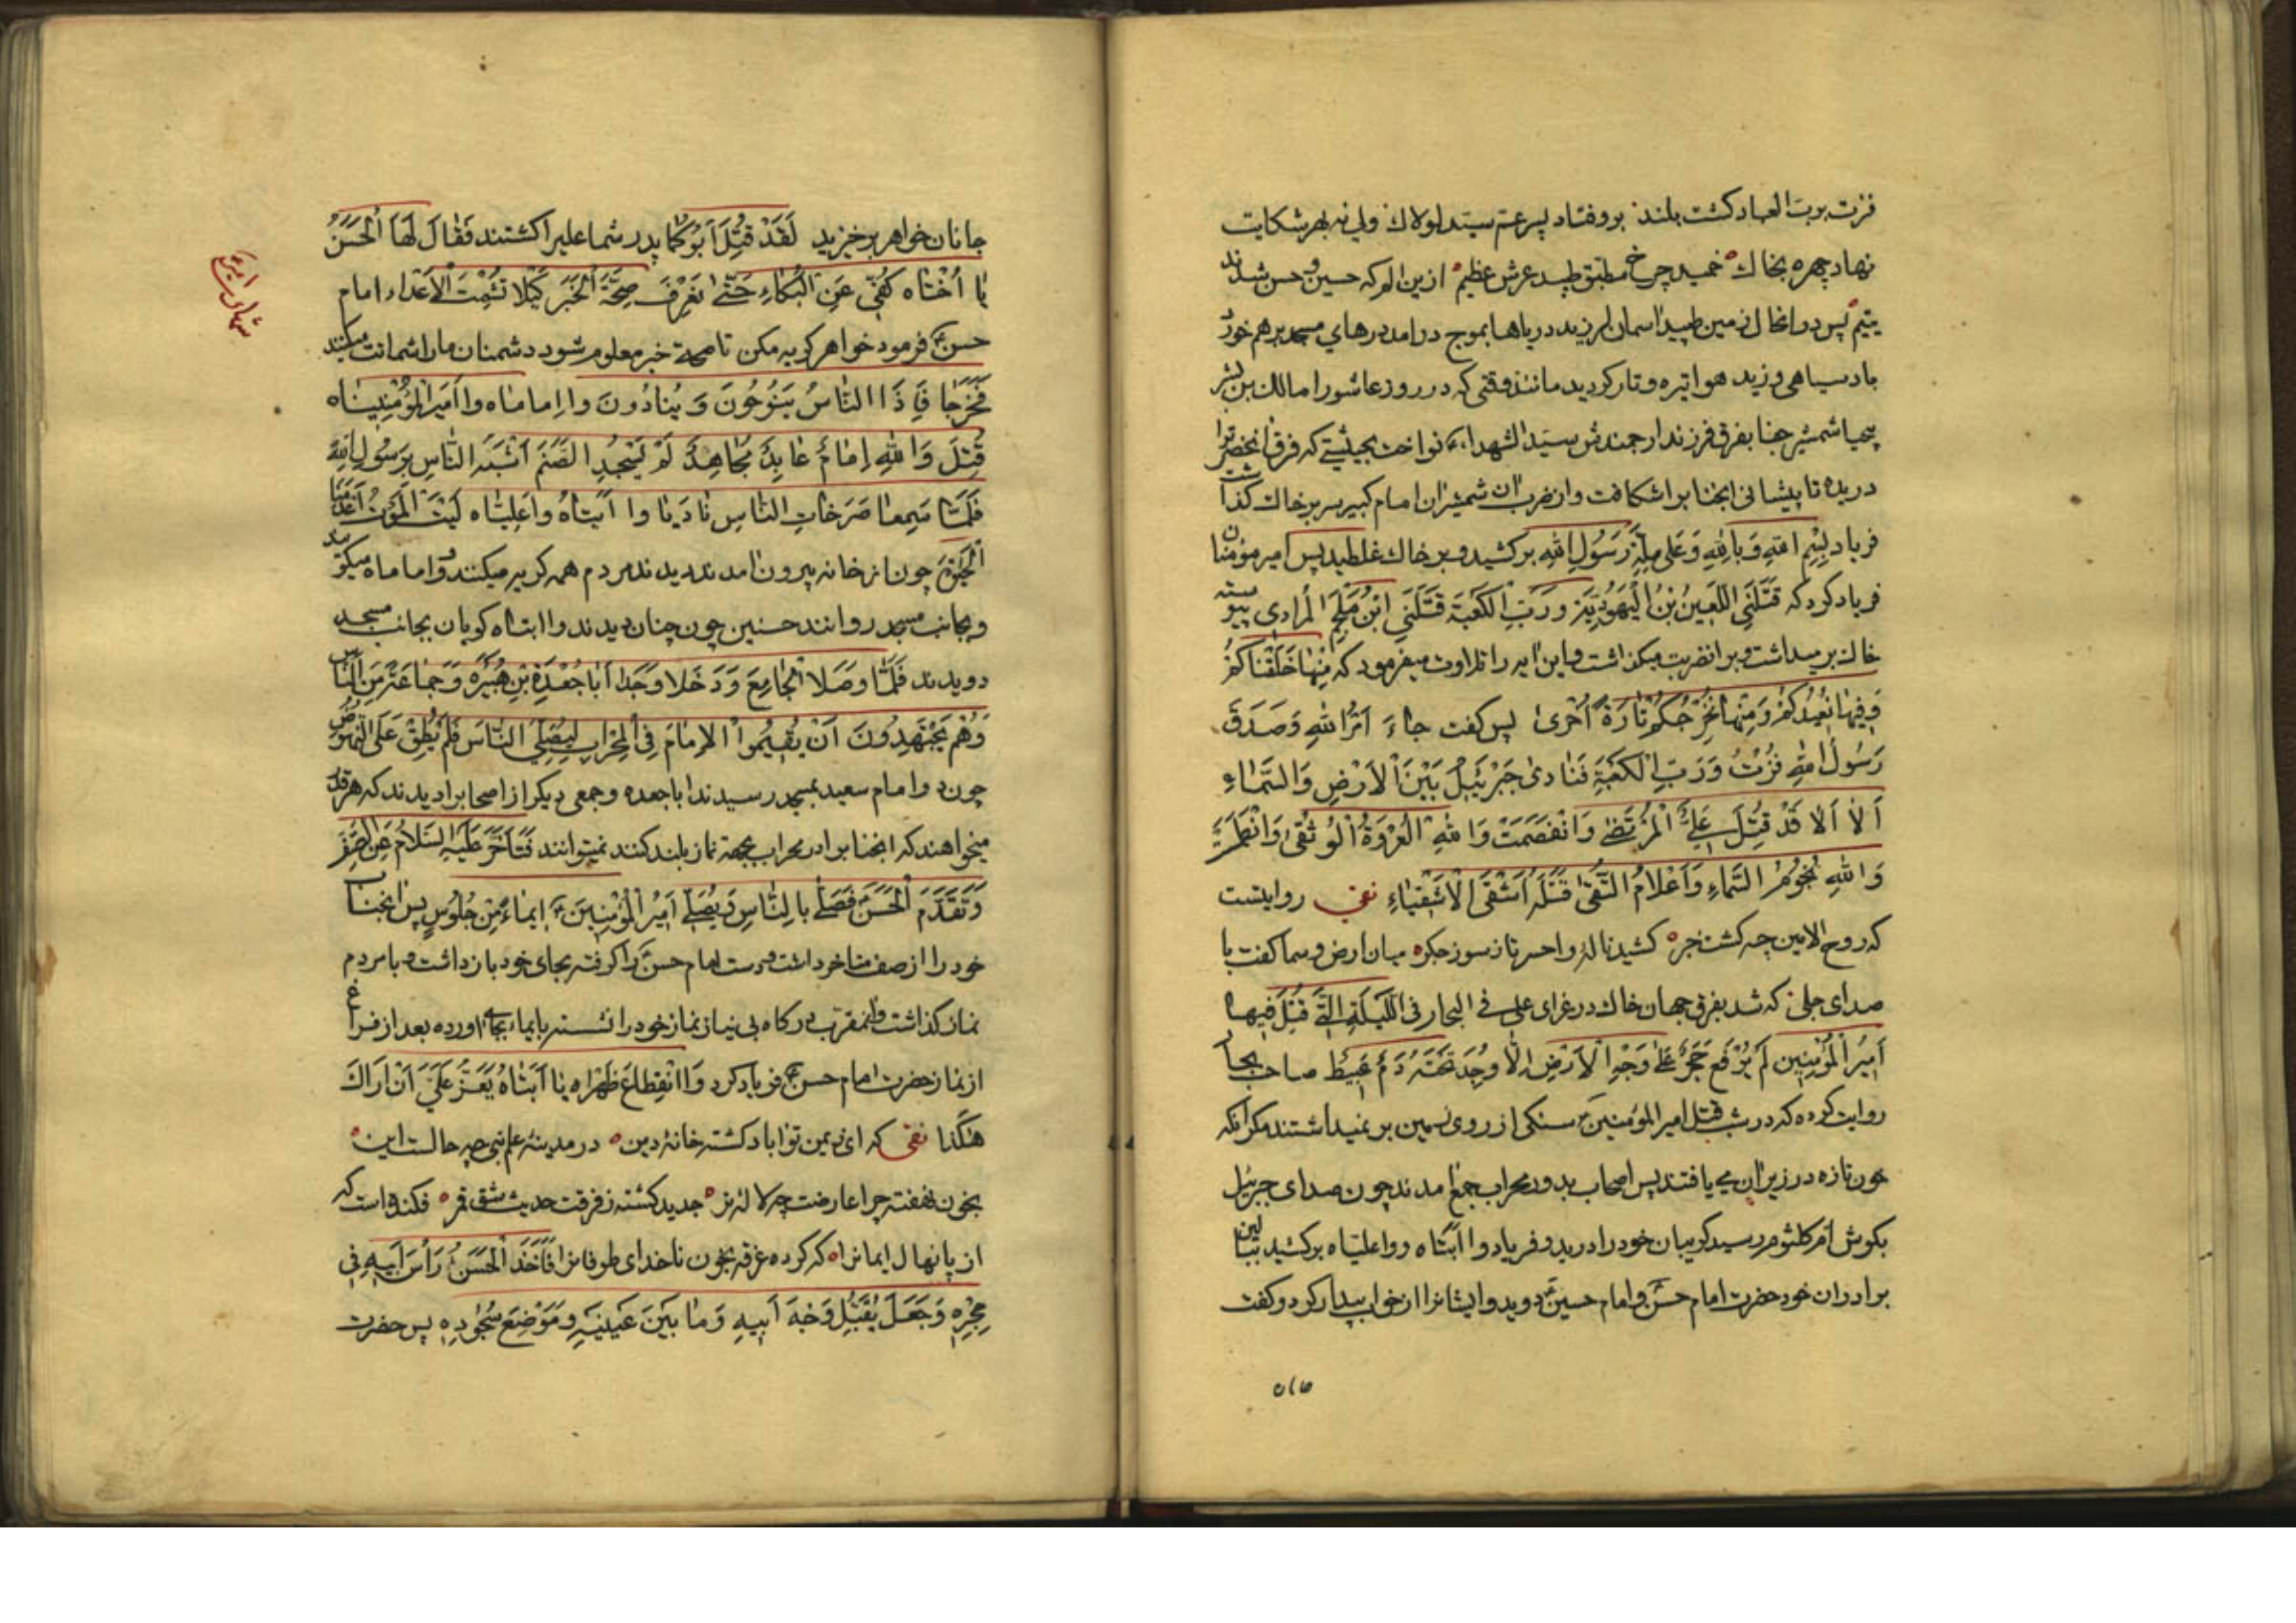 فزت برب العباد کشت بلند بروفتاد پسر عم سید لولاك ولی نه بهر شکایت
نهاد چهره بخاك خمید چرخ مطبق طپید عرش عظیم ازین الم که حسین و حسن شدند
یتیم پس در انحال زمین طپید اسمان لرزید دریاها بموج درامد درهای مسجد برهم خورد
باد سیاهی وزید هوا تیره و تار کردید مانند وقتی که در روز عاشورا مالك بن بشر
شمشیر جفا بفرق فرزند ارجمندش سید الشهداء نواخت بحیثیتی که فرق انحضرترا
دریده تا پیشانی انجناب را شکافت و از ضرب ان شمشیر ان امام کبیر سر بر خاك گذاشت
فریاد بِسْمِ اللهِ وَبِاللهِ وَعَلی مِلَّةِ رَسُولِ اللهِ برکشید و بر خاك غلطید پس امیر مؤمنان
فریاد کرد که قَتَلَنِی اللَّعِینُ بْنُ الْیَهُودِیَّةِ وَرَبِّ الْکَعْبَةِ قَتَلَنِی ابْنُ مُلْجَمِ الْمُرادی پیوسته
خاك برمیداشت و بر انضربت میکذاشت و این ایه را تلاوت میفرمود که مِنْها خَلَقْناکُمْ
وَفِیها نُعِیدُکُمْ وَمِنْها نُخْرِجُکُمْ تارَةً اُخْری پس کفت جاءَ اَمْرُ اللهِ وَصَدَقَ
رَسُولُ اللهِ فُزْتُ وَرَبِّ الْکَعْبَةِ فَنادی جَبْرَئِیلُ بَیْنَ الْاَرْضِ وَالسَّماءِ
اَلا اَلا قَدْ قُتِلَ عَلِیُّ الْمُرْتَضی وَانْفَصَمَتْ وَاللهِ الْعُرْوَةُ الْوُثْقی وَانْطَمَسَتْ
وَاللهِ نُجُومُ السَّماءِ وَاَعْلامُ التُّقی قَتَلَهُ اَشْقَی الْاَشْقِیاءِ نفی روایتست
که روح الامین چه کشت خبر کشید ناله واحسرتا ز سوز جکر میان ارض و سما کفت با
صدای جلی که شد بفرق جهان خاك در عزای علی فی البحار فی اللَّیْلَةِ الَّتی قُتِلَ فِیها
اَمِیرُ الْمُؤْمِنِین لَمْ یُرْفَعْ حَجَرٌ عَلی وَجْهِ الْاَرْضِ اِلّا وُجِدَ تَحْتَهُ دَمٌ عَبِیطٌ صاحب بحار
روایت کرده که در شب قتل امیر المؤمنین سنکی از روی زمین بر نمیداشتند مکر انکه
خون تازه در زیر ان می یافتند پس اصحاب بدور محراب جمع امدند چون صدای جبرئیل
بکوش ام کلثوم رسید کریبان خود را درید و فریاد وا ابتاه و وا علیاه برکشید ببالین
برادران خود حضرت امام حسن و امام حسین دوید و ایشانرا از خواب بیدار کرد و کفت
جانان خواهر برخیزید لَقَدْ قُتِلَ اَبُوکُما پدر شما علیرا کشتند فَقالَ لَهَا الْحَسَنُ
یا اُخْتاه کُفّی عَنِ الْبُکاءِ حَتّی نَعْرِفَ صِحَّةَ الْخَبَرِ کَیْلا تَشْمَتَ الْاَعْداء امام
حسن فرمود خواهر کریه مکن تا صحة خبر معلوم شود دشمنان ما را شماتت میکنند
فَخَرَجا فَاِذَا النّاسُ یَنُوحُونَ وَیُنادُونَ وا اِماماه وا اَمِیرَ الْمُؤْمِنِیناه
قُتِلَ وَاللهِ اِمامٌ عابِدٌ مُجاهِدٌ لَمْ یَسْجُدْ لِصَنَمٍ اَشْبَهَ النّاسِ بِرَسُولِ اللهِ
فَلَمّا سَمِعا صَرَخاتِ النّاسِ نادَیا وا اَبَتاهُ وا عَلِیّاه لَیْتَ الْمَوْتَ اَعْدَمَنَا
الْحَیوةَ چون از خانه بیرون امدند دیدند مردم همه کریه میکنند و اماماه میکویند
و بجانب مسجد روانند حسنین چون چنان دیدند وا ابتاه کویان بجانب مسجد
دویدند فَلَمّا وَصَلا الْجامِعَ وَدَخَلا وَجَدا اَبا جُعْدَةَ بْنِ هُبَیْرَه وَجَماعَةً مِنَ النّاس
وَهُمْ یَجْتَهِدُونَ اَنْ یُقِیمُوا الْاِمامَ فِی الْمِحْرابِ لِیُصَلِّیَ النّاسَ فَلَمْ یُطِقْ عَلَی النُّهُوضِ
چون دو امام سعید بمسجد رسیدند ابا جعده و جمعی دیکر از اصحابرا دیدند که هر قدر
میخواهند که انجنابرا در محراب بجهة نماز بلند کنند نمیتوانند فَتَاَخَّرَ عَلَیْهِ السَّلامُ عَنِ الصَّفِّ
وَتَقَدَّمَ الْحَسَنُ فَصَلّی بِالنّاسِ وَیُصَلّی اَمِیرُ الْمُؤْمِنِینَ اِیماءً مِنْ جُلُوسٍ پس انجناب
خود را از صف متاخر داشت و دست امام حسن را کرفته بجای خود باز داشت و با مردم
نماز کذاشت و ان مقرب درکاه بی نیاز نماز خود را نشسته بایماء بجای اورده بعد از فراغ
از نماز حضرت امام حسن فریاد کرد وَا انْقِطاعَ ظَهْراه یا اَبَتاهُ یَعَزُّ عَلَیَّ اَنْ اَراكَ
هکَذا نفی که ای زیمن تو اباد کشته خانهٔ دین در مدینهٔ علم نبی چه حالست این
بخون نهفته چرا عارضت چه لالهٔ تر جدید کشته ز فرقت حدیث شق قمر فکنده است که
از پا نهال ایمانرا که کرده غرقه بخون ناخدای طوفانرا فَاَخَذَ الْحَسَنُ رَأْسَ اَبِیهِ فِی
حِجْرِهِ وَجَعَلَ یُقَبِّلُ وَجْهَ اَبِیهِ وَما بَیْنَ عَیْنَیْهِ وَمَوْضِعَ سُجُودِهِ پس حضرت